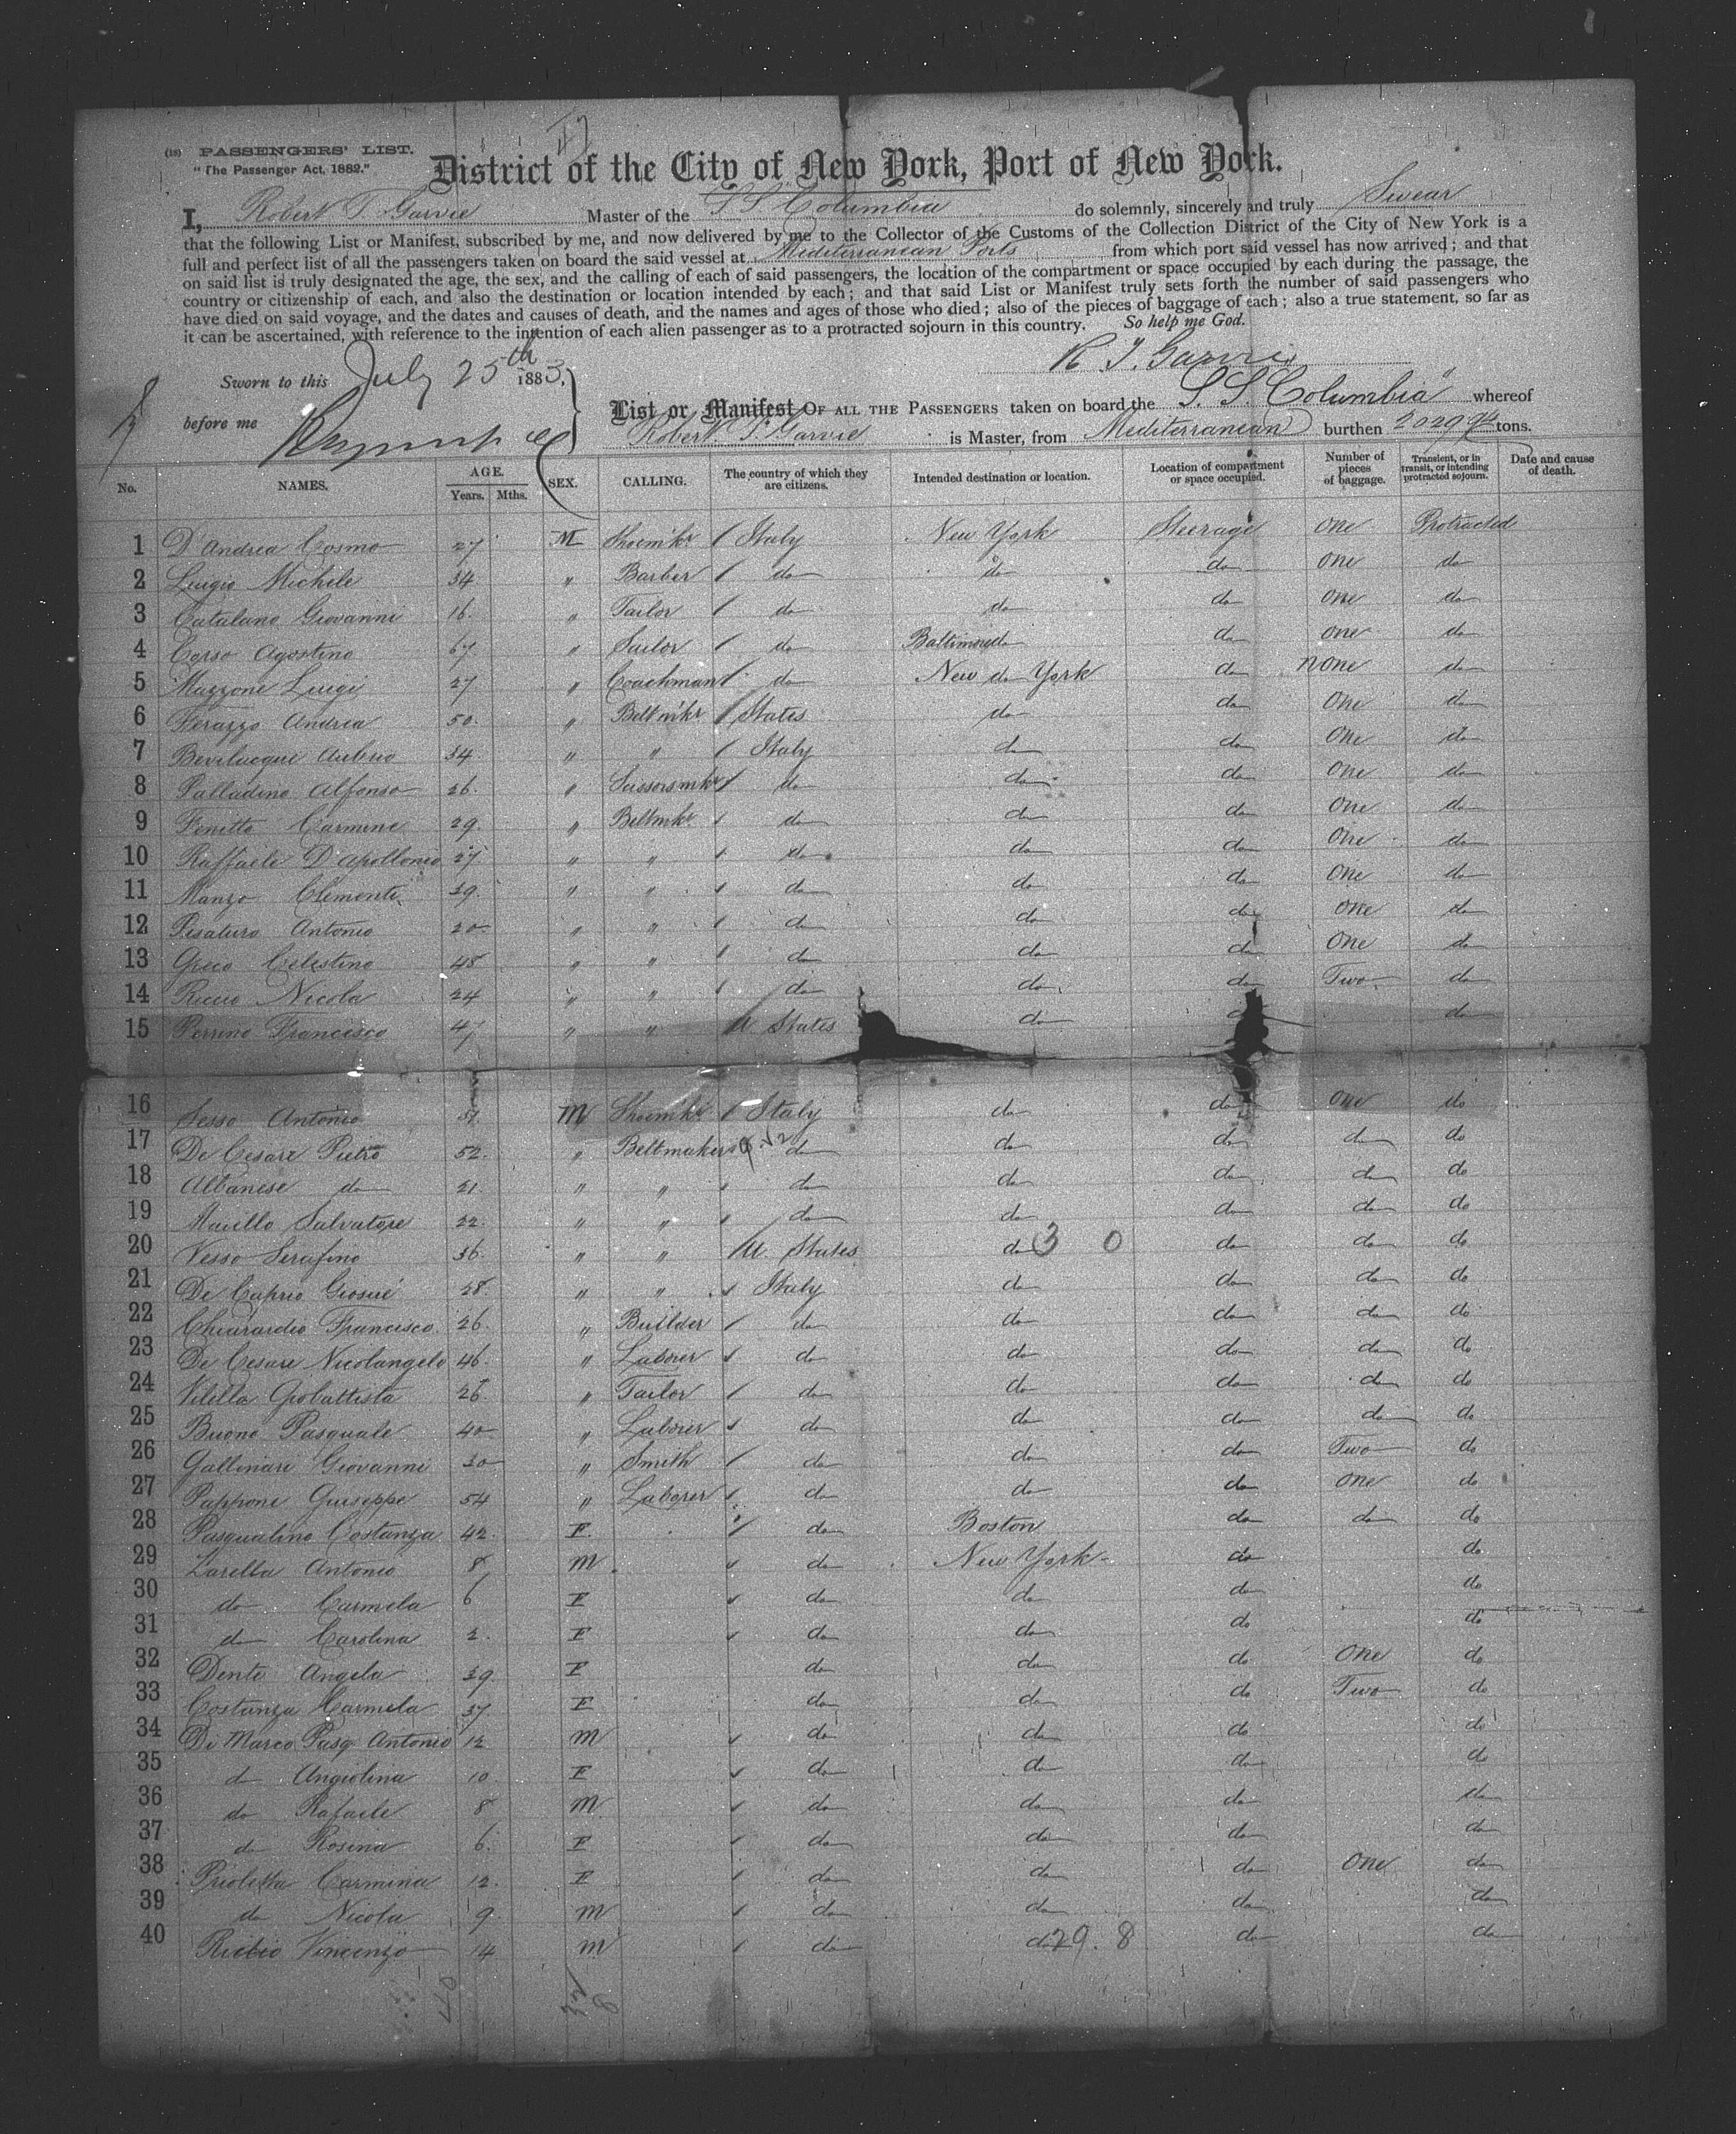 (18) PASSENGERS' LIST.
"The Passenger Act, 1882."
District of the City of New York, Port of New York.
I, Robert T. Garvie Master of the S S Columbia do solemnly, sincerely and truly Swear
that the following List or Manifest, subscribed by me, and now delivered by me to the Collector of the Customs of the Collection District of the City of New York is a
full and perfect list of all the passengers taken on board the said vessel at Mediterranean Ports from which port said vessel has now arrived; and that
on said list is truly designated the age, the sex, and the calling of each of said passengers, the location of the compartment or space occupied by each during the passage, the
country or citizenship of each, and also the destination or location intended by each; and that said List or Manifest truly sets forth the number of said passengers who
have died on said voyage, and the dates and causes of death, and the names and ages of those who died; also of the pieces of baggage of each; also a true statement, so far as
it can be ascertained, with reference to the intention of each alien passenger as to a protracted sojourn in this country. So help me God.
R T. Garvie
Sworn to this July 25th 1883,
before me
List or Manifest OF ALL THE PASSENGERS taken on board the S. S. Columbia" whereof
Robert T. Garvie is Master, from Mediterranean burthen 2029 tons.
No. NAMES. AGE. Years. Mths. SEX. CALLING. The country of which they are citizens. Intended destination or location. Location of compartment or space occupied. Number of pieces of baggage. Transient, or in transit, or intending protracted sojourn. Date and cause of death.
1 D'Andrea Cosmo 27 M Shoemkr Italy New York Steerage one Protracted
2 Luigio Michele 34 " Barber do do do one do
3 Catalano Giovanni 16 " Tailor do do do one do
4 Corso Agostino 67 " Sailor do Baltimore do do one do
5 Mazzone Luigi 27 " Coachman do New do York do none do
6 Ferazzo Andrea 50 " Beltmkr States do do one do
7 Bevilacque 34 " " Italy do do one do
8 Palladino Alfonso 26 " Sissorsmkr do do do one do
9 Fenitto Carmine 29 " Beltmkr do do do one do
10 Raffaele D'Apollonio 27 " " do do do one do
11 Manzo Clemente 39 " " do do do one do
12 Pisaturo Antonio 20 " " do do do one do
13 Greco Celestino 48 " " do do do one do
14 Riccio Nicola 24 " " do do do Two do
15 Perrino Francesco 47 " " U States do do
16 Sesso Antonio M Shoemkr Italy do do one do
17 De Cesare Pietro 52 " Beltmaker do do do do do
18 Albanese do 21 " " do do do do do
19 Maiello Salvatore 22 " " do do do do do
20 Vesso Serafino 36 " " U. States do 3 0 do do do
21 De Caprio Giosué 28 " " Italy do do do do
22 Chiarardio Francesco 26 " Builder do do do do do
23 De Cesare Nicolangelo 46 " Laborer do do do do do
24 Vilella Giobattista 26 " Tailor do do do do do
25 Buono Pasquale 40 " Laborer do do do do do
26 Gallinari Giovanni 30 " Smith do do do Two do
27 Pappone Guiseppe 54 " Laborer do do do one do
28 Pasqualino Costanza 42 F. do Boston do do do
29 Zarella Antonio 8 M do New York do do
30 do Carmela 6 F do do do do
31 do Carolina 2 F do do do do
32 Dente Angela 39 F do do do one do
33 Costanza Carmela 37 F do do do Two do
34 De Marco Pasq Antonio 12 M do do do do
35 do Angiolina 10 F do do do do
36 do Rafaele 8 M do do do do
37 do Rosina 6 F do do do do
38 Prioletta Carmina 12 F do do do one do
39 do Nicola 9 M do do do do
40 Vincenzo 14 M do do 29. 8 do do